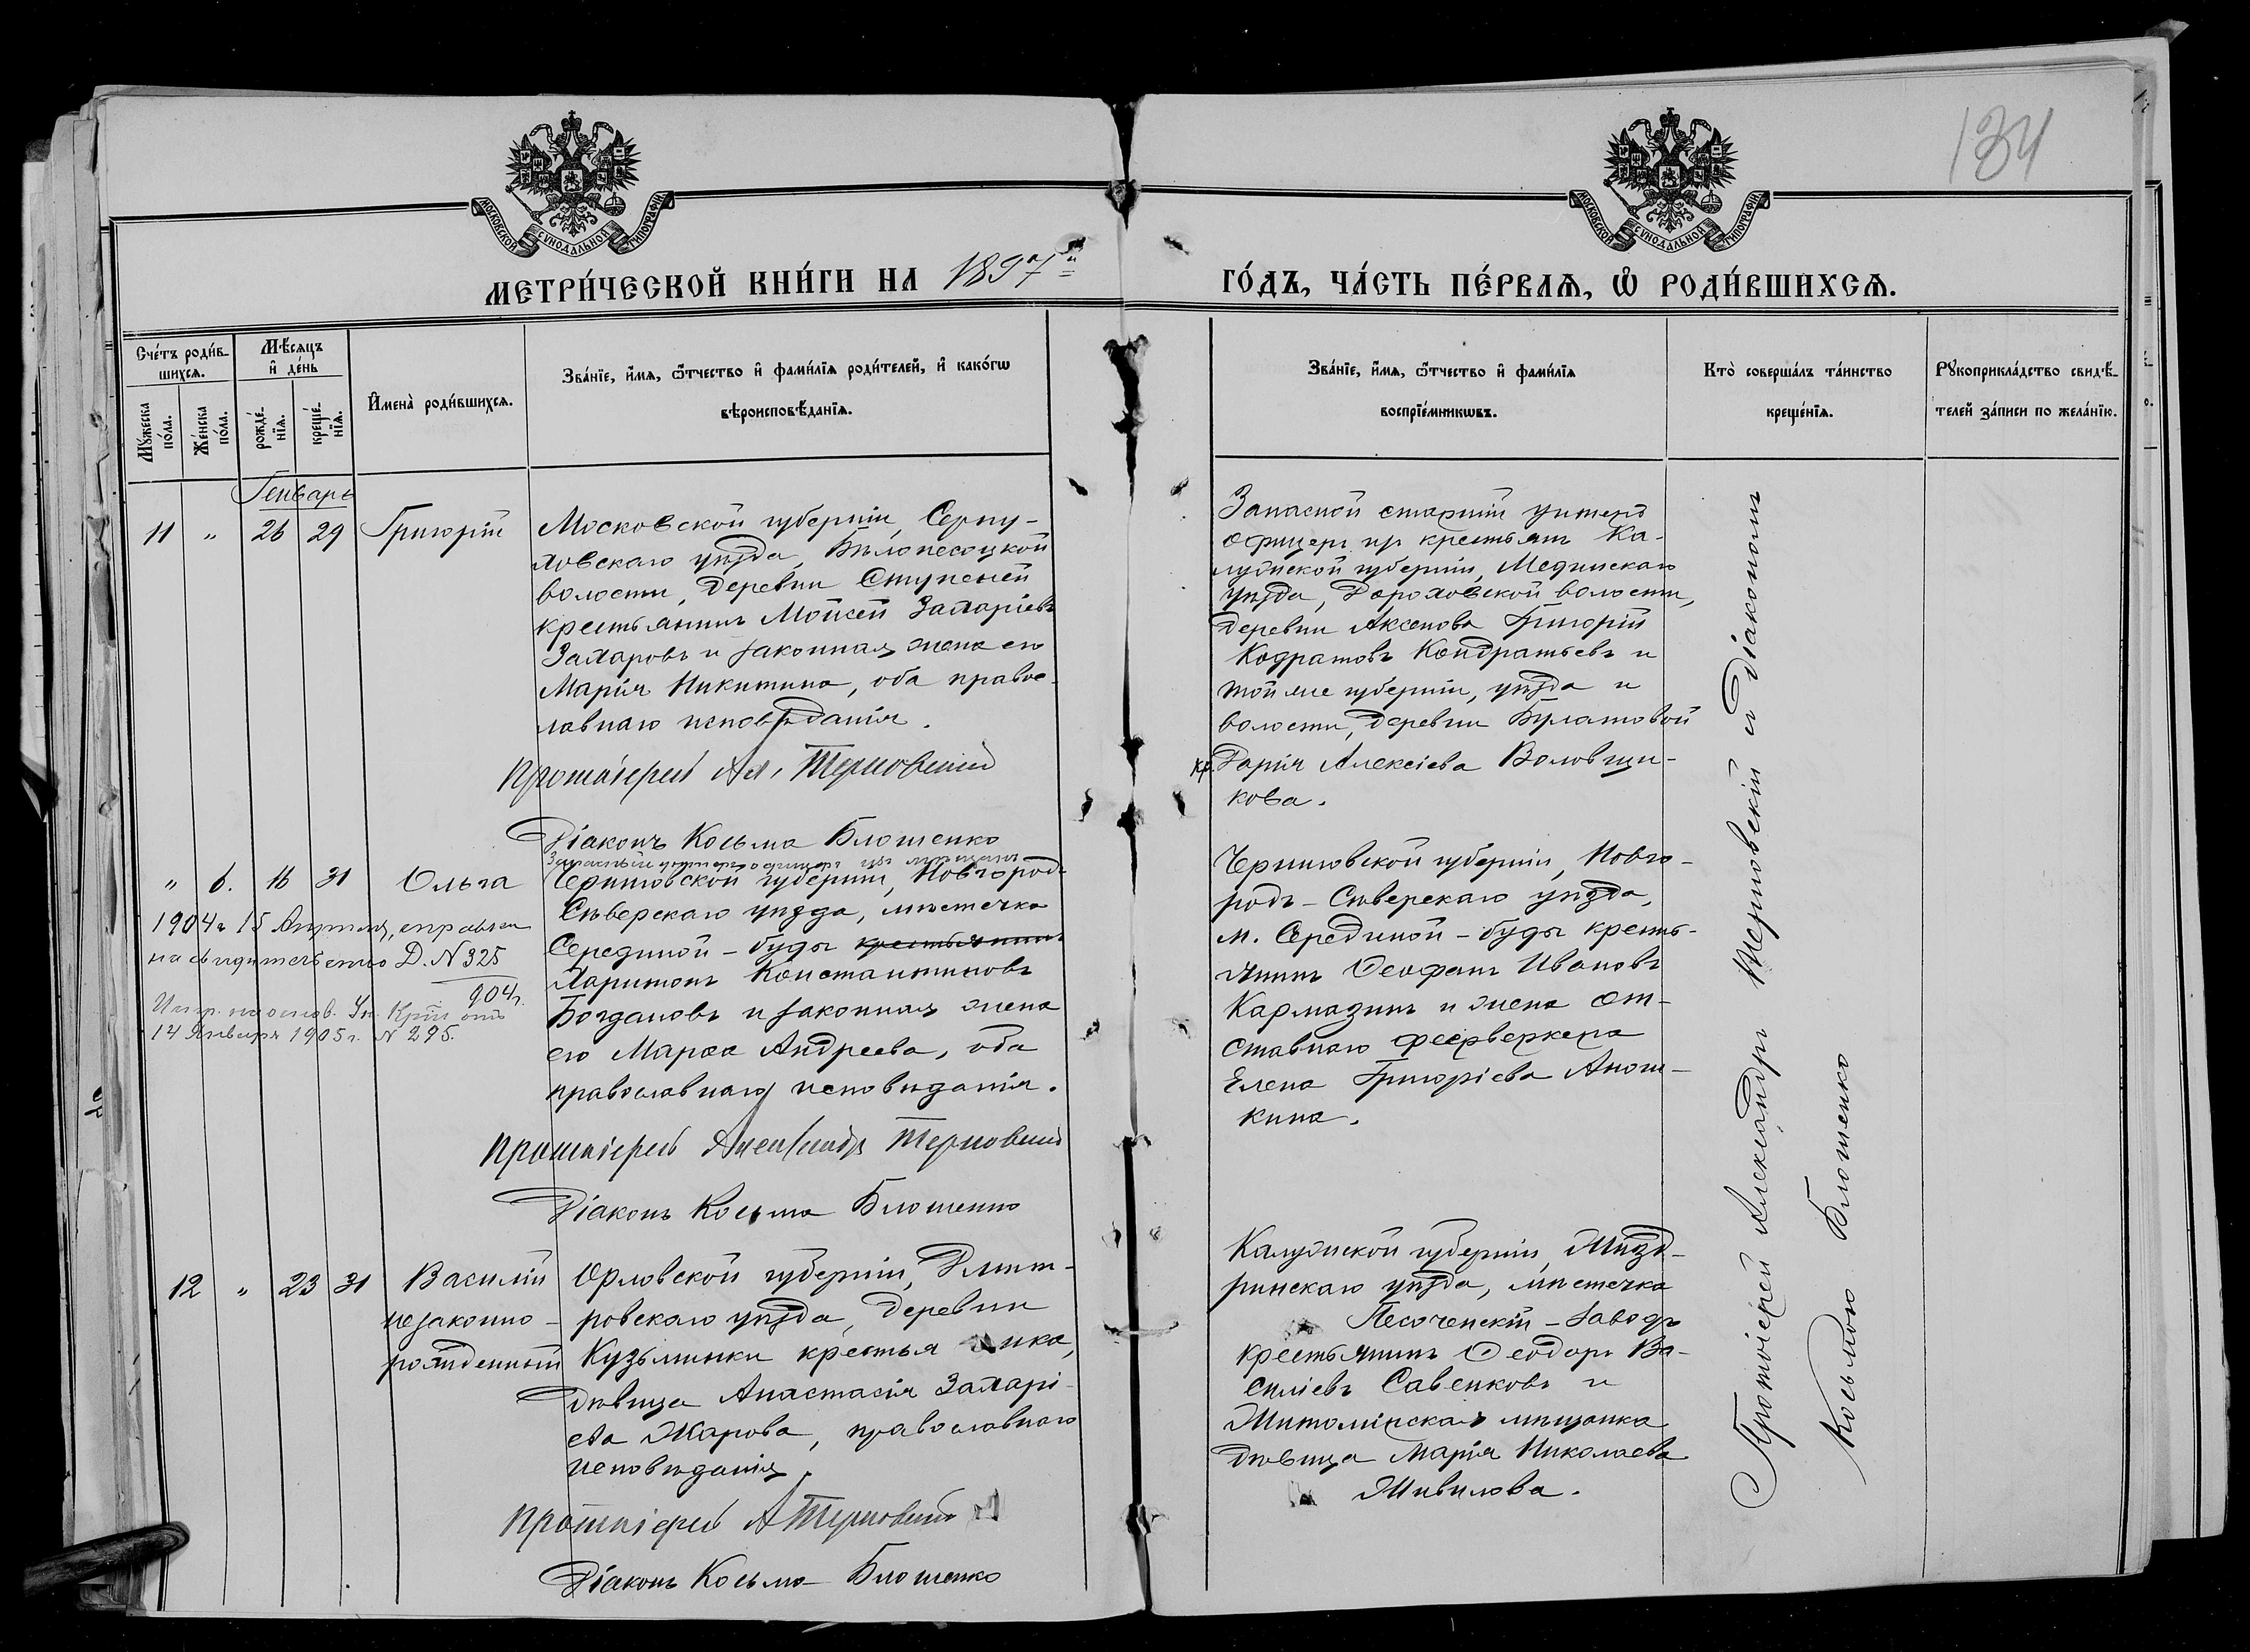 134
МОСКОВСКОЙ СѴНОДАЛЬНОЙ ТИПОГРАФІИ
МОСКОВСКОЙ СѴНОДАЛЬНОЙ ТИПОГРАФІИ
МЕТРИ́ЧЕСКОЙ КНИ́ГИ НА 1897й
ГО́ДЪ, ЧА́СТЬ ПЕ́РВАѦ, Ѽ РОДИ́ВШИХСѦ.
Сче́тъ роди́в-
шихсѧ.
Мѣ́сѧцъ
и҆ де́нь
Мꙋ́жеска по́ла.
Же́нска по́ла.
рожде́-
нїѧ.
креще́-
нїѧ.
И҆мена̀ роди́вшихсѧ.
Зва́нїе, и҆́мѧ, ѻ҆́тчество и҆ фами́лїѧ роди́телей, и҆ како́гѡ
вѣроисповѣ́данїѧ.
Зва́нїе, и҆́мѧ, ѻ҆́тчество и҆ фами́лїѧ
воспрїе́мникѡвъ.
Кто̀ соверша́лъ та́инство
креще́нїѧ.
Рꙋкоприкла́дство свидѣ́-
телей за́писи по жела́нїю.
Генварь
11 " 26 29 Григорій
Московской губерніи, Серпу-
ховскаго уѣзда, Бѣлопесоцкой
волости, деревни Ступеней
крестьянинъ Мойсей Захаріевъ
Захаровъ и законная жена его
Марія Никитина, оба правос-
лавнаго исповѣданія.
Протоіерей Ал. Терновскій
Діаконъ Косьма Блошенко
Запасной старшій унтеръ
офицеръ изъ крестьянъ Ка-
лужской губерніи, Медынскаго
уѣзда, Дороховской волости,
деревни Аксенова Григорій
Кодратовъ Кондратьевъ и
той же губерніи, уѣзда и
волости, деревни Булатовой
кр. Дарія Алексіева Воловщи-
кова.
" 6. 16 31 Ольга
Запасный унтеръ офицеръ изъ мѣщанъ
Черниговской губерніи, Новгород-
Сѣверскаго уѣзда, мѣстечка
Середикой-буды крестьянинъ
Харитонъ Константиновъ
Богдановъ и законная жена
его Марѳа Андреева, оба
православнаго исповѣданія.
1904 г 15 Апрѣля, справлен
на свидѣтельство Д. N 325
904г.
Испр. на основ. Ук. Крѣп. отъ
14 Января 1905 г. N 295.
Протоіерей Александръ Терновскій
Діаконъ Косьма Блошенко
Черниговской губерніи, Новго-
родъ-Сѣверскаго уѣзда,
м. Середикой-буды кресть-
янинъ Ѳеофанъ Ивановъ
Кармазинъ и жена от-
ставнаго феерверкера
Елена Григоріева Анош-
кина.
12 " 23 31 Василій
незаконно-
рожденный
Орловской губерніи, Дмит-
ровскаго уѣзда, деревни
Кузьминки крестьянка,
дѣвица Анастасія Захарі-
ева Жарова, православнаго
исповѣданія.
Протоіерей А Терновскій
Діаконъ Косьма Блошенко
Калужской губерніи, Жизд-
ринскаго уѣзда, мѣстечка
Песоченскій-заводъ
крестьянинъ Ѳеодоръ Ва-
силіевъ Савенковъ и
Житомірская мѣщанка
дѣвица Марія Николаева
Живилова.
Протоіерей Александръ Терновскій съ Діакономъ
Косьмою Блошенко